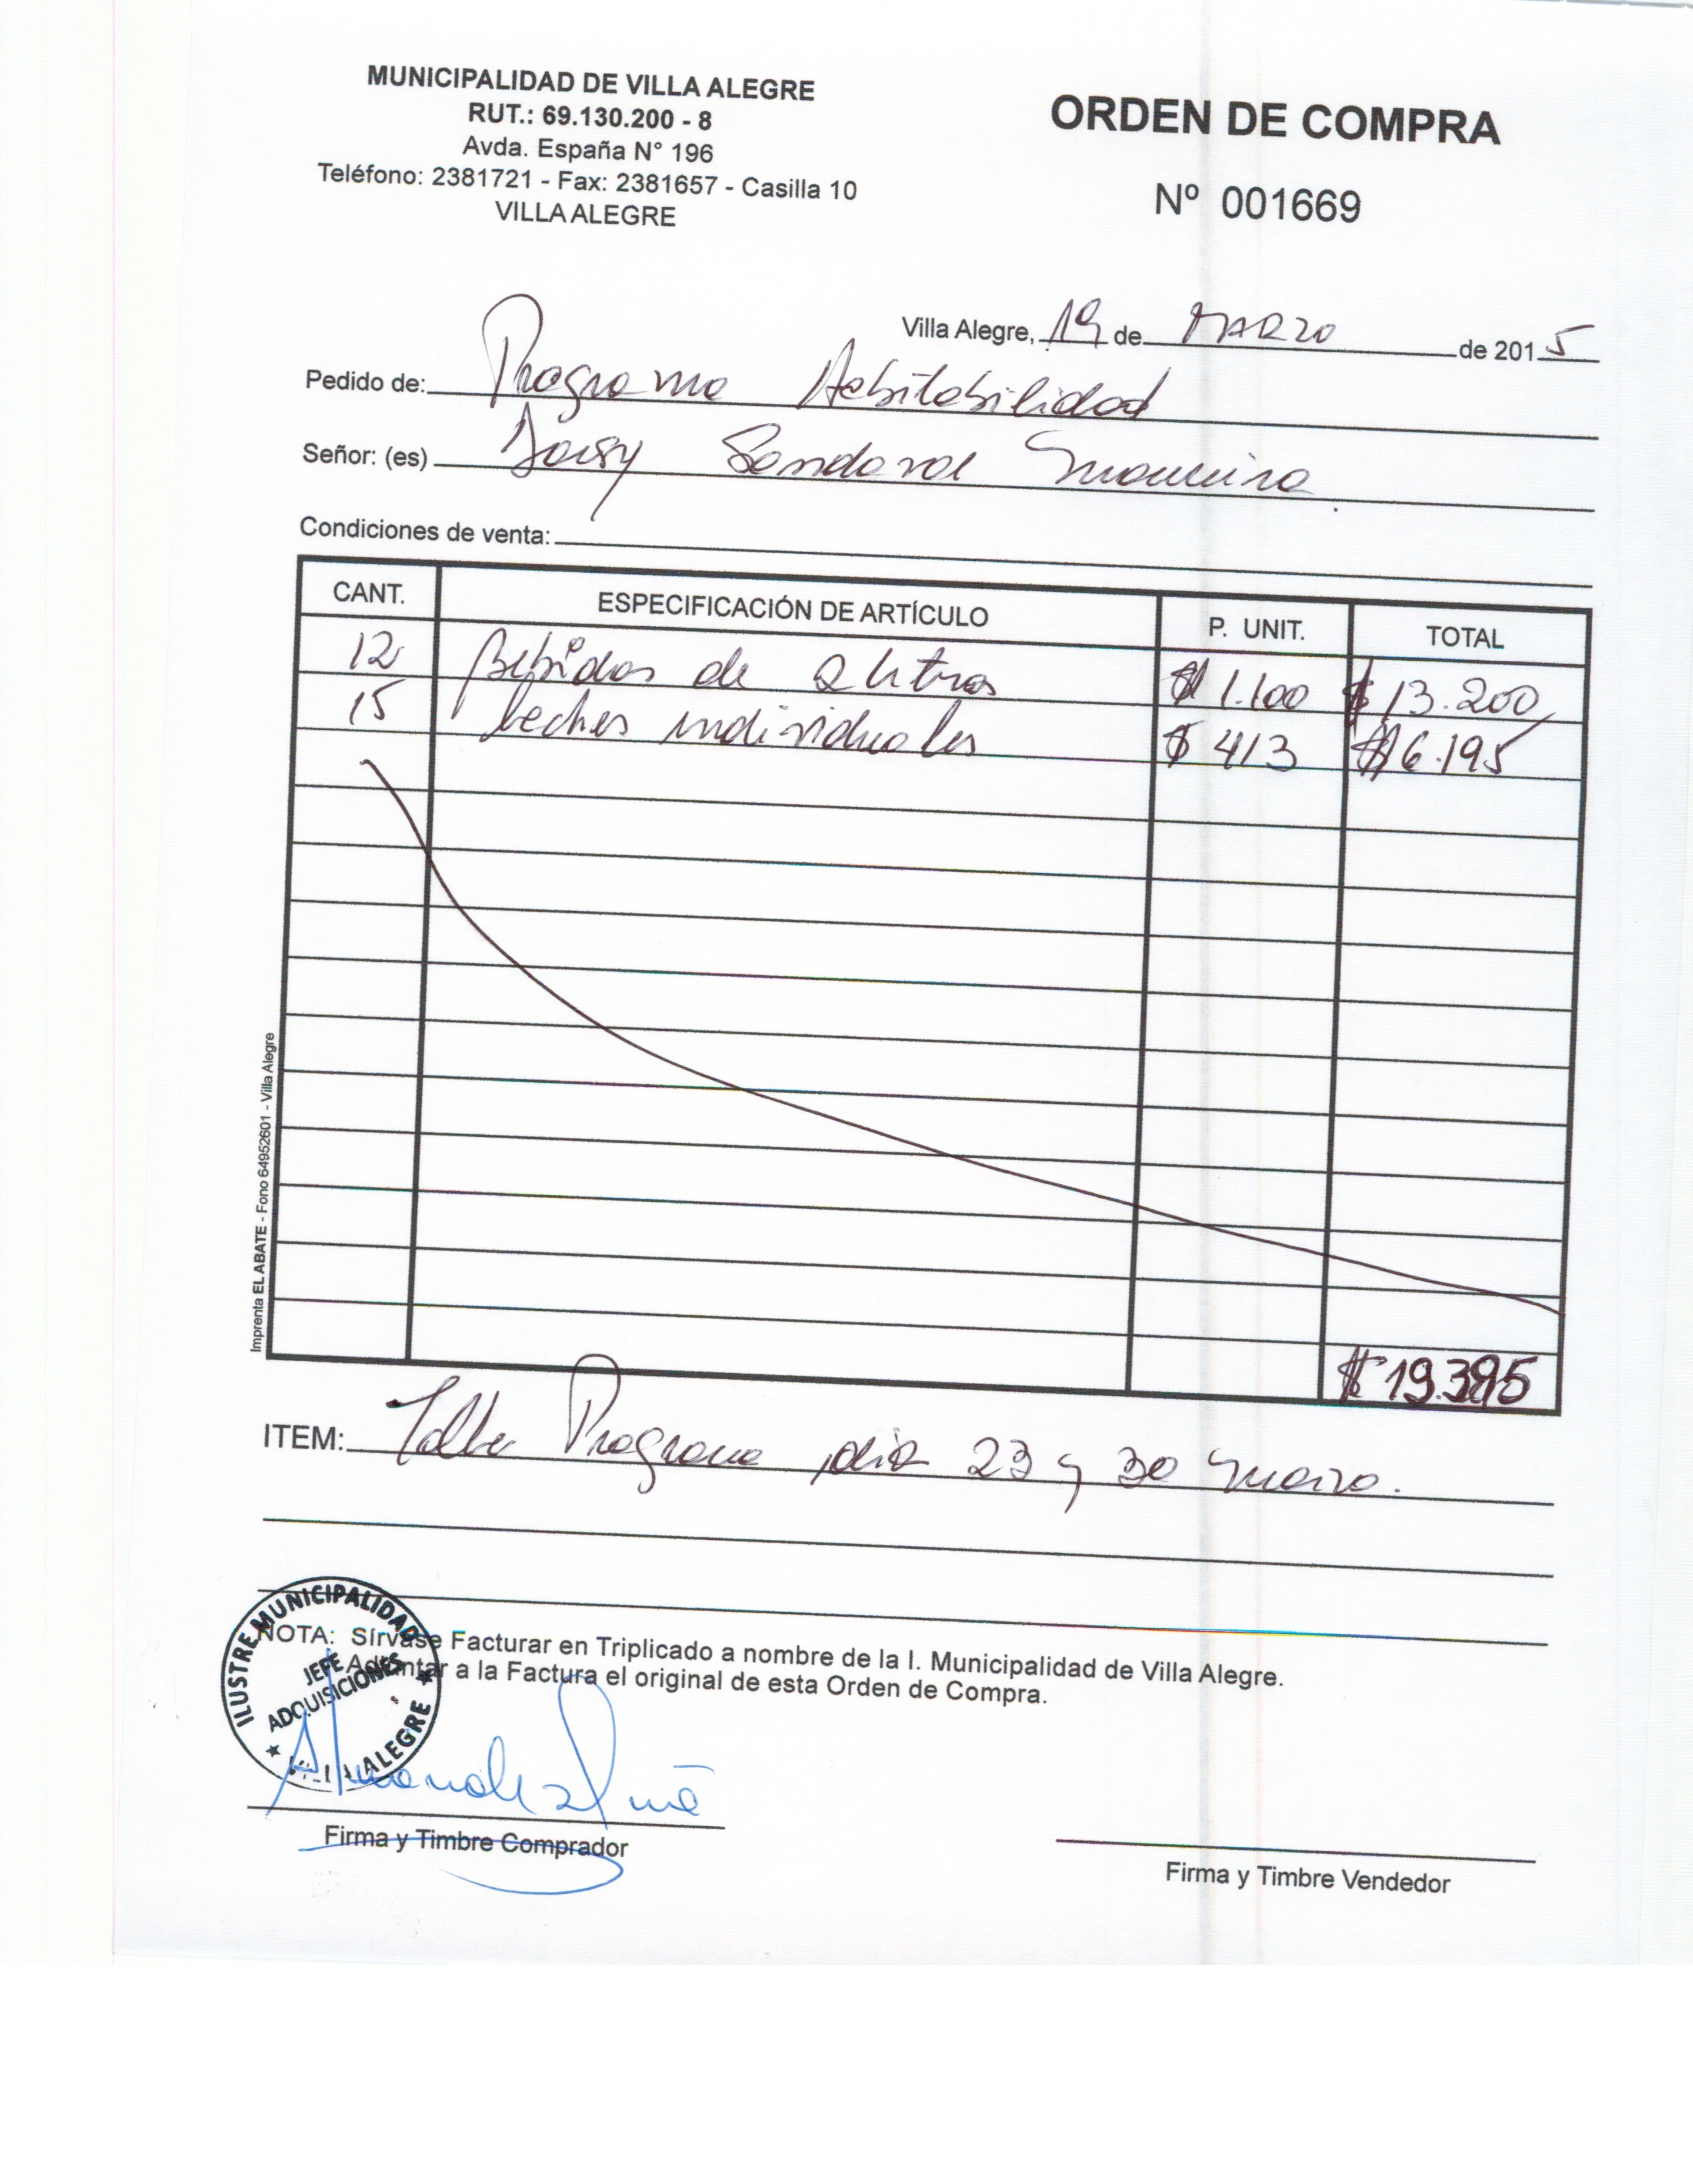 MUNICIPALIDAD DE VILLA ALEGRE
RUT.: 69.130.200 - 8
Avda. España N° 196
Teléfono: 2381721 - Fax: 2381657 - Casilla 10
VILLA ALEGRE
ORDEN DE COMPRA
Nº 001669
Villa Alegre, 19 de MARZO de 2015
Pedido de: Programa Habitabilidad
Señor: (es) Sandoval
Condiciones de venta:
CANT. ESPECIFICACIÓN DE ARTÍCULO P. UNIT. TOTAL
12 Bebidas de 2 litros $ 1.100 $ 13.200
15 leches individuales $ 413 $ 6.195
$ 19.395
ITEM: Taller Programa dia 23 y 30 marzo.
NOTA: Sírvase Facturar en Triplicado a nombre de la I. Municipalidad de Villa Alegre.
Adjuntar a la Factura el original de esta Orden de Compra.
ILUSTRE MUNICIPALIDAD
JEFE
ADQUISICIONES
VILLA ALEGRE
Firma y Timbre Comprador
Firma y Timbre Vendedor
Imprenta EL ABATE - Fono 64952601 - Villa Alegre